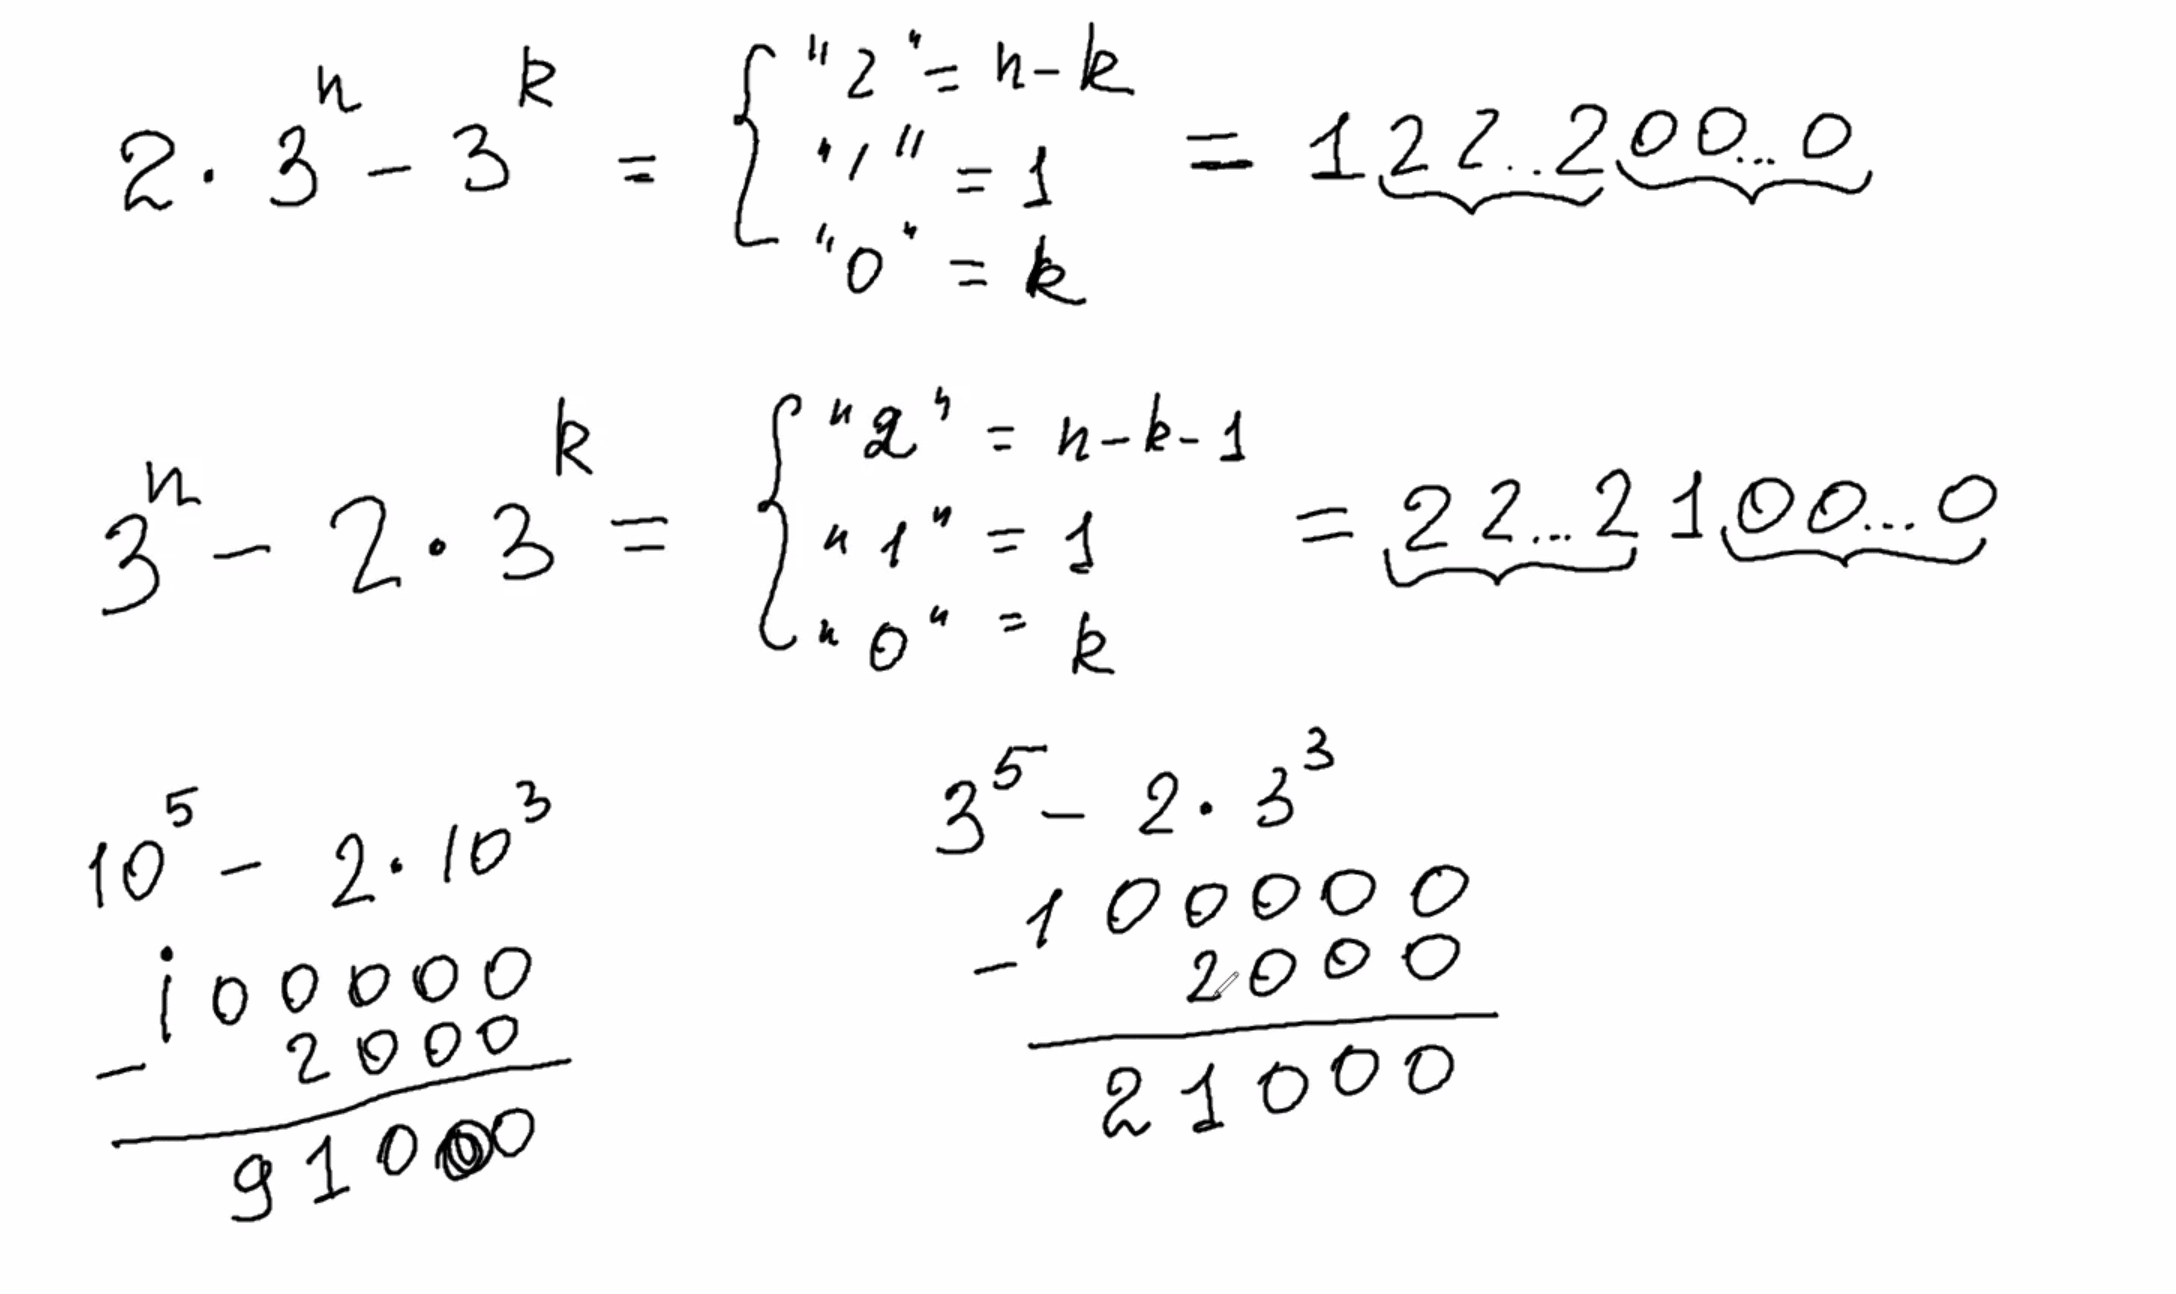 2 · 3ⁿ − 3ᵏ = { "2" = n − k
"1" = 1
"0" = k
= 122..200...0
3ⁿ − 2 · 3ᵏ = { "2" = n − k − 1
"1" = 1
"0" = k
= 22...2100...0
10⁵ − 2 · 10³
100000
− 2000
91000
3⁵ − 2 · 3³
100000
− 2000
21000